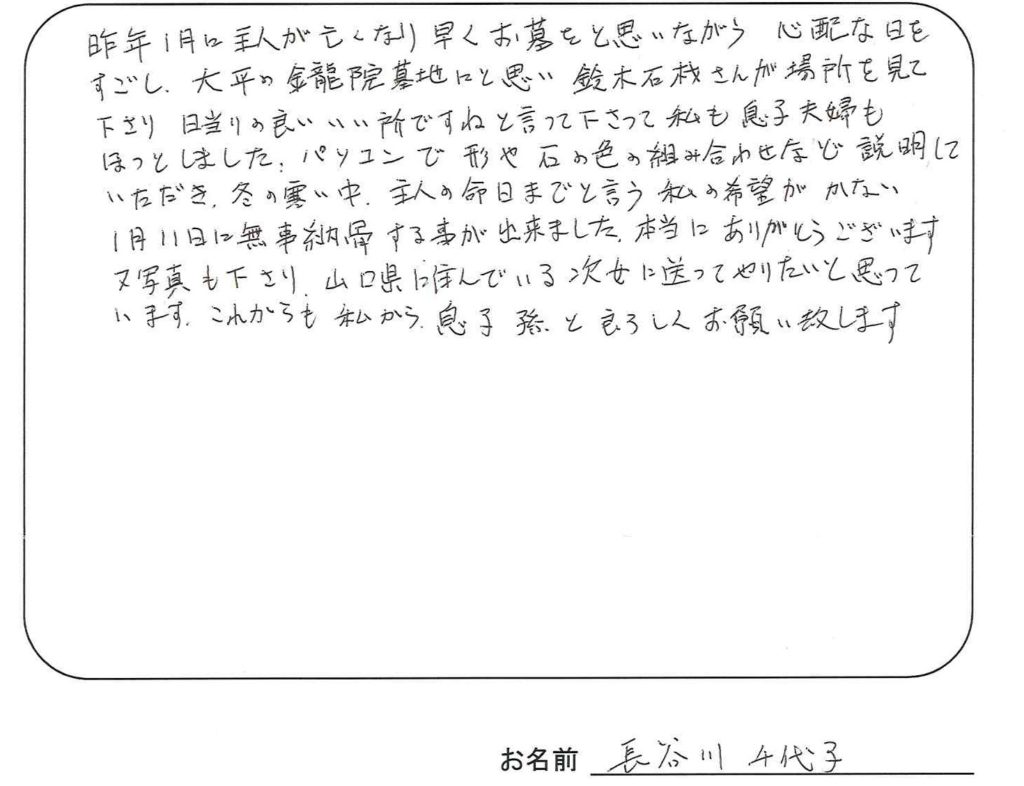 昨年1月に主人が亡くなり早くお墓をと思いながら 心配な日を
すごし、大平の金龍院墓地にと思い 鈴木石材さんが場所を見て
下さり 日当りの良いいい所ですねと言って下さって私も息子夫婦も
ほっとしました。パソコンで形や石の色の組み合わせなど説明して
いただき、冬の寒い中、主人の命日までと言う私の希望がかない
1月11日に無事納骨する事が出来ました。本当にありがとうございます
又写真も下さり、山口県に住んでいる次女に送ってやりたいと思って
います。これからも私から、息子 孫と良ろしくお願い致します
お名前 長谷川 千代子